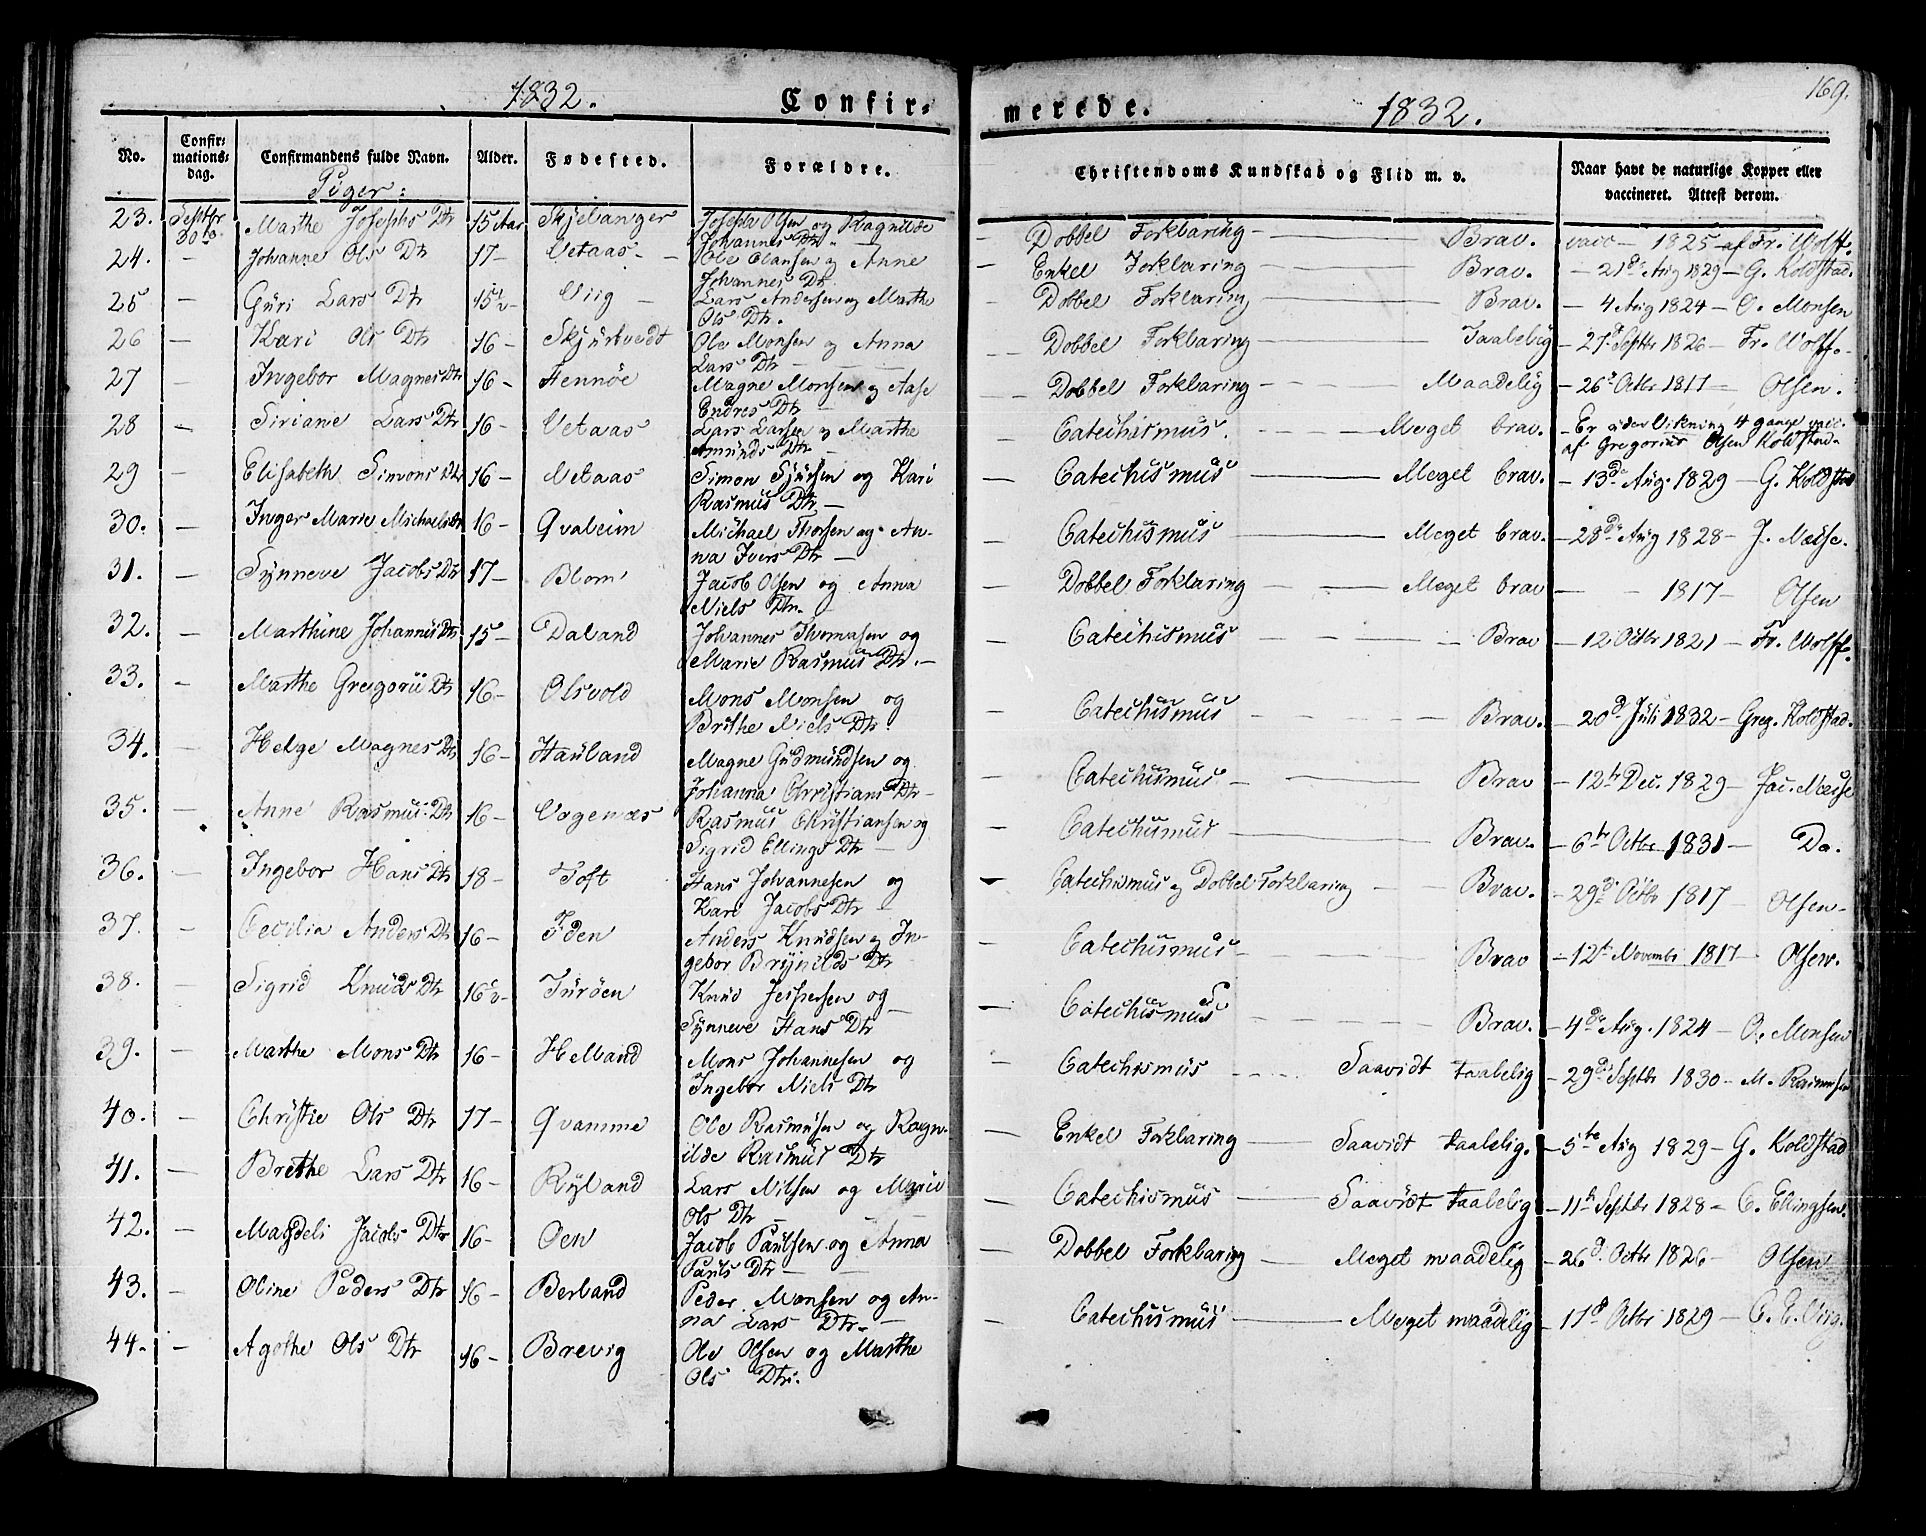 1832. Confir-
No. Confir-mations-dag. Confirmandens fulde Navn. Alder. Fødested. Forældre.
Piger:
23. Septbr 30te Marthe Josephs Dtr 15 Aar Skjelanger Joseph Olsen og Ragnilde
Johannes Dtr
24. — Johanne Ols Dtr 17 — Vetaas — Ole Olausen og Anne
Johannes Dtr
25 — Guri Lars Dtr 15½ — Viig — Lars Andersen og Marthe
Ols Dtr.
26 — Kari Ols Dtr 16 — Skjurtvedt Ole Monsen og Anna
Lars Dtr
27 — Ingebor Magnes Dtr 16 — Fennöe Magne Monsen og Aase
Endres Dtr —
28 — Siriane Lars Dtr 16 — Vetaas Lars Larsen og Marthe
Amunds Dtr —
29 — Elisabeth Simons Dtr 16 — Vetaas Simon Sjursen og Kari
Rasmus Dtr —
30. — Inger Marie Michaels Dtr 16 — Qvaleim Michael Thorsen og An-
na Ivers Dtr —
31. — Synneve Jacobs Dtr 17 — Blom Jacob Olsen og Anna
Niels Dtr
32. — Marthine Johannis Dtr 15 — Daland Johannes Thomasen og
Marie Rasmus Dtr. —
33. — Marthe Gregorii Dtr 16 — Olsvold Mons Monsen og
Brithe Niels Dtr
34. — Helge Magnes Dtr 16 — Hauland Magne Gudmundsen og
Johanna Christians Dtr —
35. — Anne Rasmus Dtr 16 — Vogenæs Rasmus Christiansen og
Sigrid Ellings Dtr —
36. — Ingebor Hans Dtr 18 — Toft Hans Johannesen og
Kari Jacobs Dtr —
37. — Cecilia Anders Dtr 16 — Iden Anders Knudsen og In-
gebor Brynilds Dtr
38. — Sigrid Knuds Dtr 16½ — Turöen Knud Jespersen og —
Synneve Hans Dtr
39. — Marthe Mons Dtr 16 — Helland Mons Johannesen og
Ingebor Niels Dtr
40. — Christie Ols Dtr 17 — Qvamme Ole Rasmusen og Ragn-
ilde Rasmus Dtr
41. — Brethe Lars Dtr 16 — Ryland Lars Nilsen og Marie
Ols Dtr —
42. — Magdeli Jacobs Dtr 16 — Oen Jacob Paulsen og Anna
Pauls Dtr —
43. — Oline Peders Dtr 16 — Berland Peder Monsen og An-
na Lars Dtr. —
44. — Agothe Ols Dtr 16 — Brevig Ole Olsen og Marthe
Ols Dtr.
merede. 1832. 169.
Christendoms Kundskab og Flid m. v. Naar havt de naturlige Kopper eller
vaccineret. Attest derom.
— Dobbel Forklaring — Brav. vacc — 1825 — af Fr. Wolff.
— Enkel Forklaring — Brav. — 21de Aug 1829 — G. Koldstad.
— Dobbel Forklaring — Brav. — 4 Aug 1824 — O. Monsen
— Dobbel Forklaring — Taalelig — 27d Septbr 1826 — Fr. Wolff.
— Dobbel Forklaring — Maadelig — 26d Octbr 1817 — Olsen.
— Catechismus. — Meget brav. — Er uden Virkning 4 gange vacc.
af Gregorius Olsen Koldstad
— Catechismus — Meget brav. — 13de Aug. 1829 — G. Koldstad
— Catechismus — Meget brav. — 28de Aug 1828 — J. Næsse.
— Dobbel Forklaring — Meget brav — 1817 — Olsen
— Catechismus — Brav — 12 Octbr 1821 — Fr. Wolff.
— Catechismus — Brav. — 20d Juli 1832 — Greg. Koldstad.
— Catechismus — Brav — 12te Dec. 1829 — Jac. Næsse
— Catechismus — Brav. — 6te Octbr 1831 — Do.
— Catechismus og Dobbel Forklaring — Brav. — 29de Octbr 1817 — Olsen —
— Catechismus — Brav — 12te Novembr 1817 — Olsen.
— Catechismus — Brav. — 4de Aug. 1824 — O. Monsen
— Catechismus — Saavidt taalelig — 29de Septbr 1830 — M. Rasmusen
— Enkel Forklaring — Saavidt taalelig. — 5te Aug 1829 — G. Koldstad
— Catechismus — Saavidt taalelig — 11te Septbr 1828 — E. Ellingsen.
— Dobbel Forklaring — Meget maadelig — 26d. Octbr 1826 — Olsen
— Catechismus — Meget maadelig — 17d Octbr 1829 — E. E. Viig.